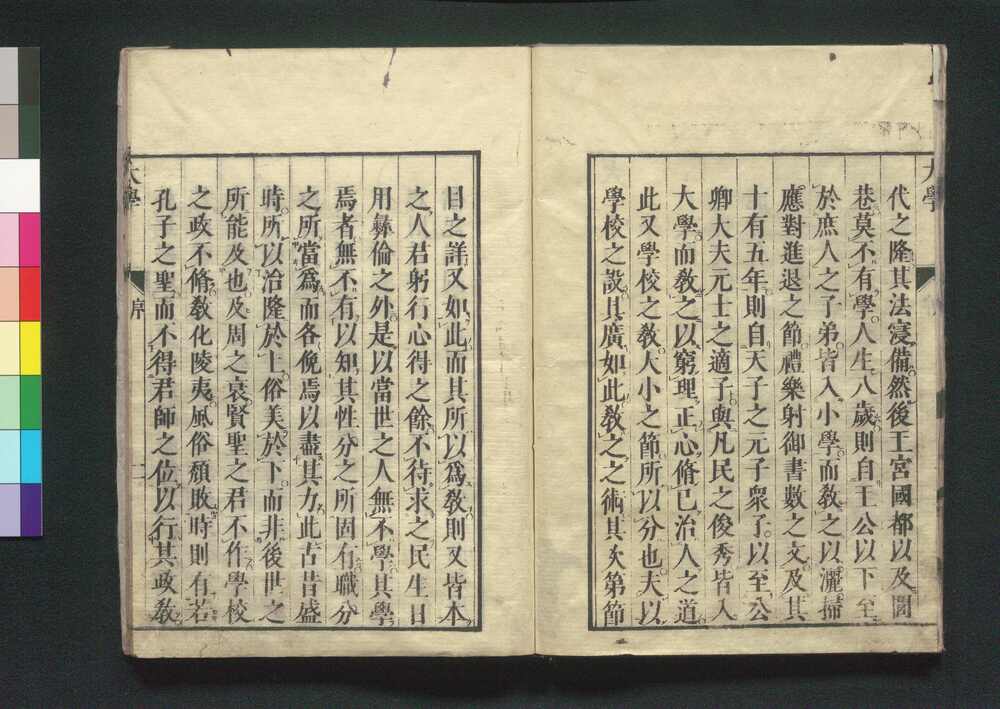 代之隆其法寖備然後王宮國都以及閭
巷莫不有學人生八歲則自王公以下至
於庶人之子弟皆入小學而敎之以灑掃
應對進退之節禮樂射御書數之文及其
十有五年則自天子之元子衆子以至公
卿大夫元士之適子與凡民之俊秀皆入
大學而敎之以窮理正心脩己治人之道
此又學校之敎大小之節所以分也夫以
學校之設其廣如此敎之之術其次第節
目之詳又如此而其所以爲敎則又皆本
之人君躬行心得之餘不待求之民生日
用彝倫之外是以當世之人無不學其學
焉者無不有以知其性分之所固有職分
之所當爲而各俛焉以盡其力此古昔盛
時所以治隆於上俗美於下而非後世之
所能及也及周之衰賢聖之君不作學校
之政不脩敎化陵夷風俗頹敗時則有若
孔子之聖而不得君師之位以行其政敎
大學
序